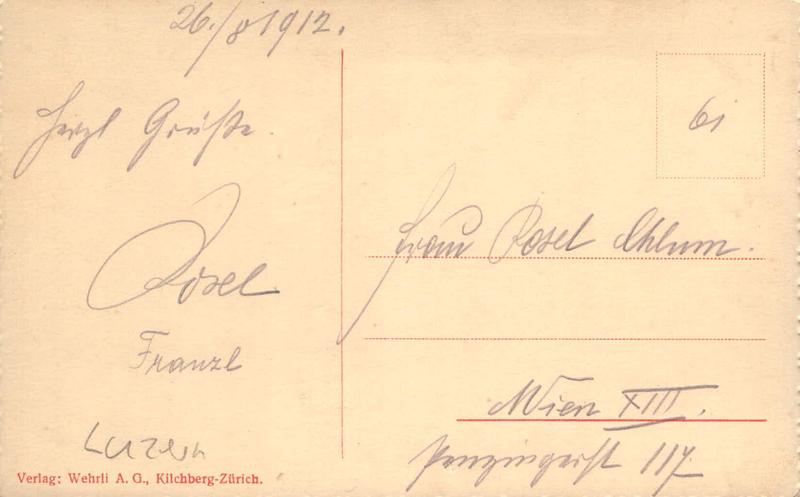 26./8 1912.
Herzl Grüße.
Rosel
Franzl
Luzern
Verlag: Wehrli A. G., Kilchberg-Zürich.
61
Frau Rosel Chlum.
Wien XIII.
Penzingerst 117